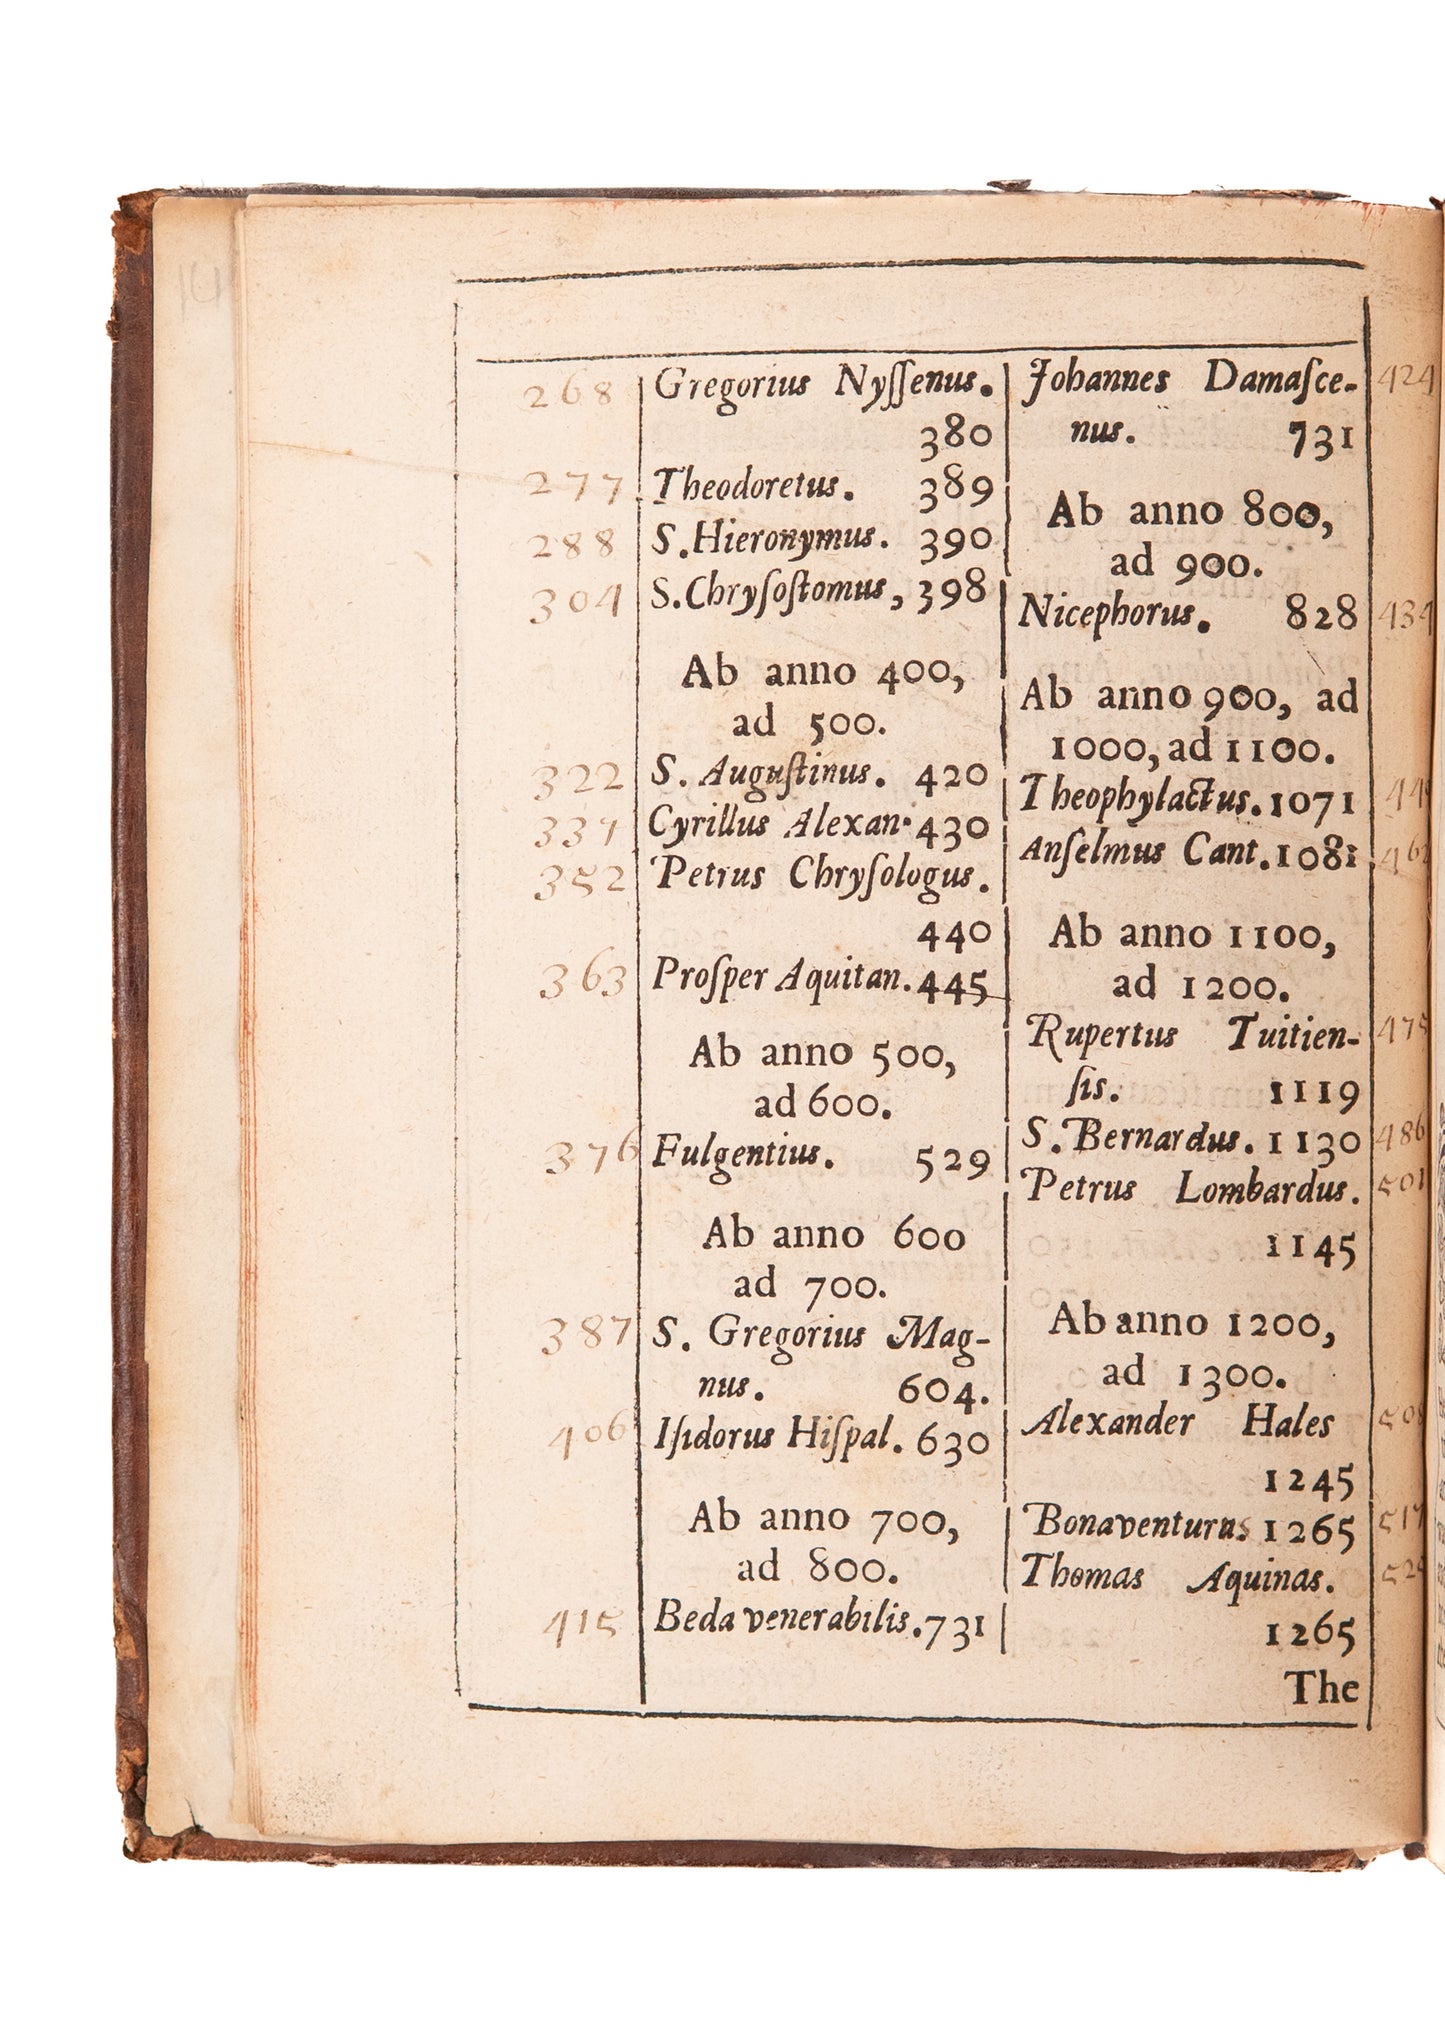 268 Gregorius Nyſſenus.
380
277 Theodoretus. 389
288 S. Hieronymus. 390
304 S. Chryſoſtomus, 398
Ab anno 400,
ad 500.
322 S. Auguſtinus. 420
337 Cyrillus Alexan. 430
352 Petrus Chryſologus.
440
363 Proſper Aquitan. 445
Ab anno 500,
ad 600.
376 Fulgentius. 529
Ab anno 600
ad 700.
387 S. Gregorius Mag-
nus. 604.
406 Iſidorus Hiſpal. 630
Ab anno 700,
ad 800.
415 Beda venerabilis. 731
Johannes Damaſce- 424
nus. 731
Ab anno 800,
ad 900.
Nicephorus. 828 434
Ab anno 900, ad
1000, ad 1100.
Theophylactus. 1071
Anſelmus Cant. 1081
Ab anno 1100,
ad 1200.
Rupertus Tuitien- 475
ſis. 1119
S. Bernardus. 1130 486
Petrus Lombardus. 501
1145
Ab anno 1200,
ad 1300.
Alexander Hales
1245
Bonaventuras 1265 517
Thomas Aquinas.
1265
The